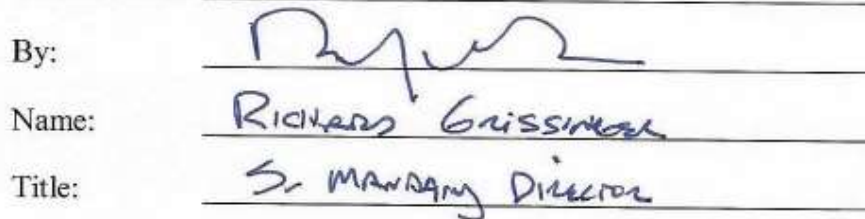 By:
Name: Richard Grissinger
Title: S. Managing Director